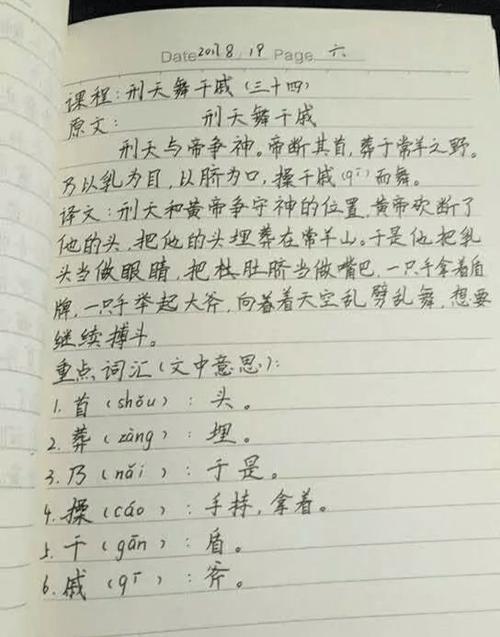 Date 2017 8 / 19 Page 六
课程：刑天舞干戚（三十四）
原文： 刑天舞干戚
刑天与帝争神。帝断其首，葬于常羊之野。
乃以乳为目，以脐为口，操干戚（qī）而舞。
译文：刑天和黄帝争夺神的位置，黄帝砍断了
他的头，把他的头埋葬在常羊山。于是他把乳
头当做眼睛，把肚脐当做嘴巴，一只手拿着盾
牌，一只手举起大斧，向着着天空乱劈乱舞，想要
继续搏斗。
重点词汇（文中意思）：
1. 首（shǒu）：头。
2. 葬（zàng）：埋。
3. 乃（nǎi）：于是。
4. 操（cáo）：手持，拿着。
5. 干（gān）：盾。
6. 戚（qī）：斧。